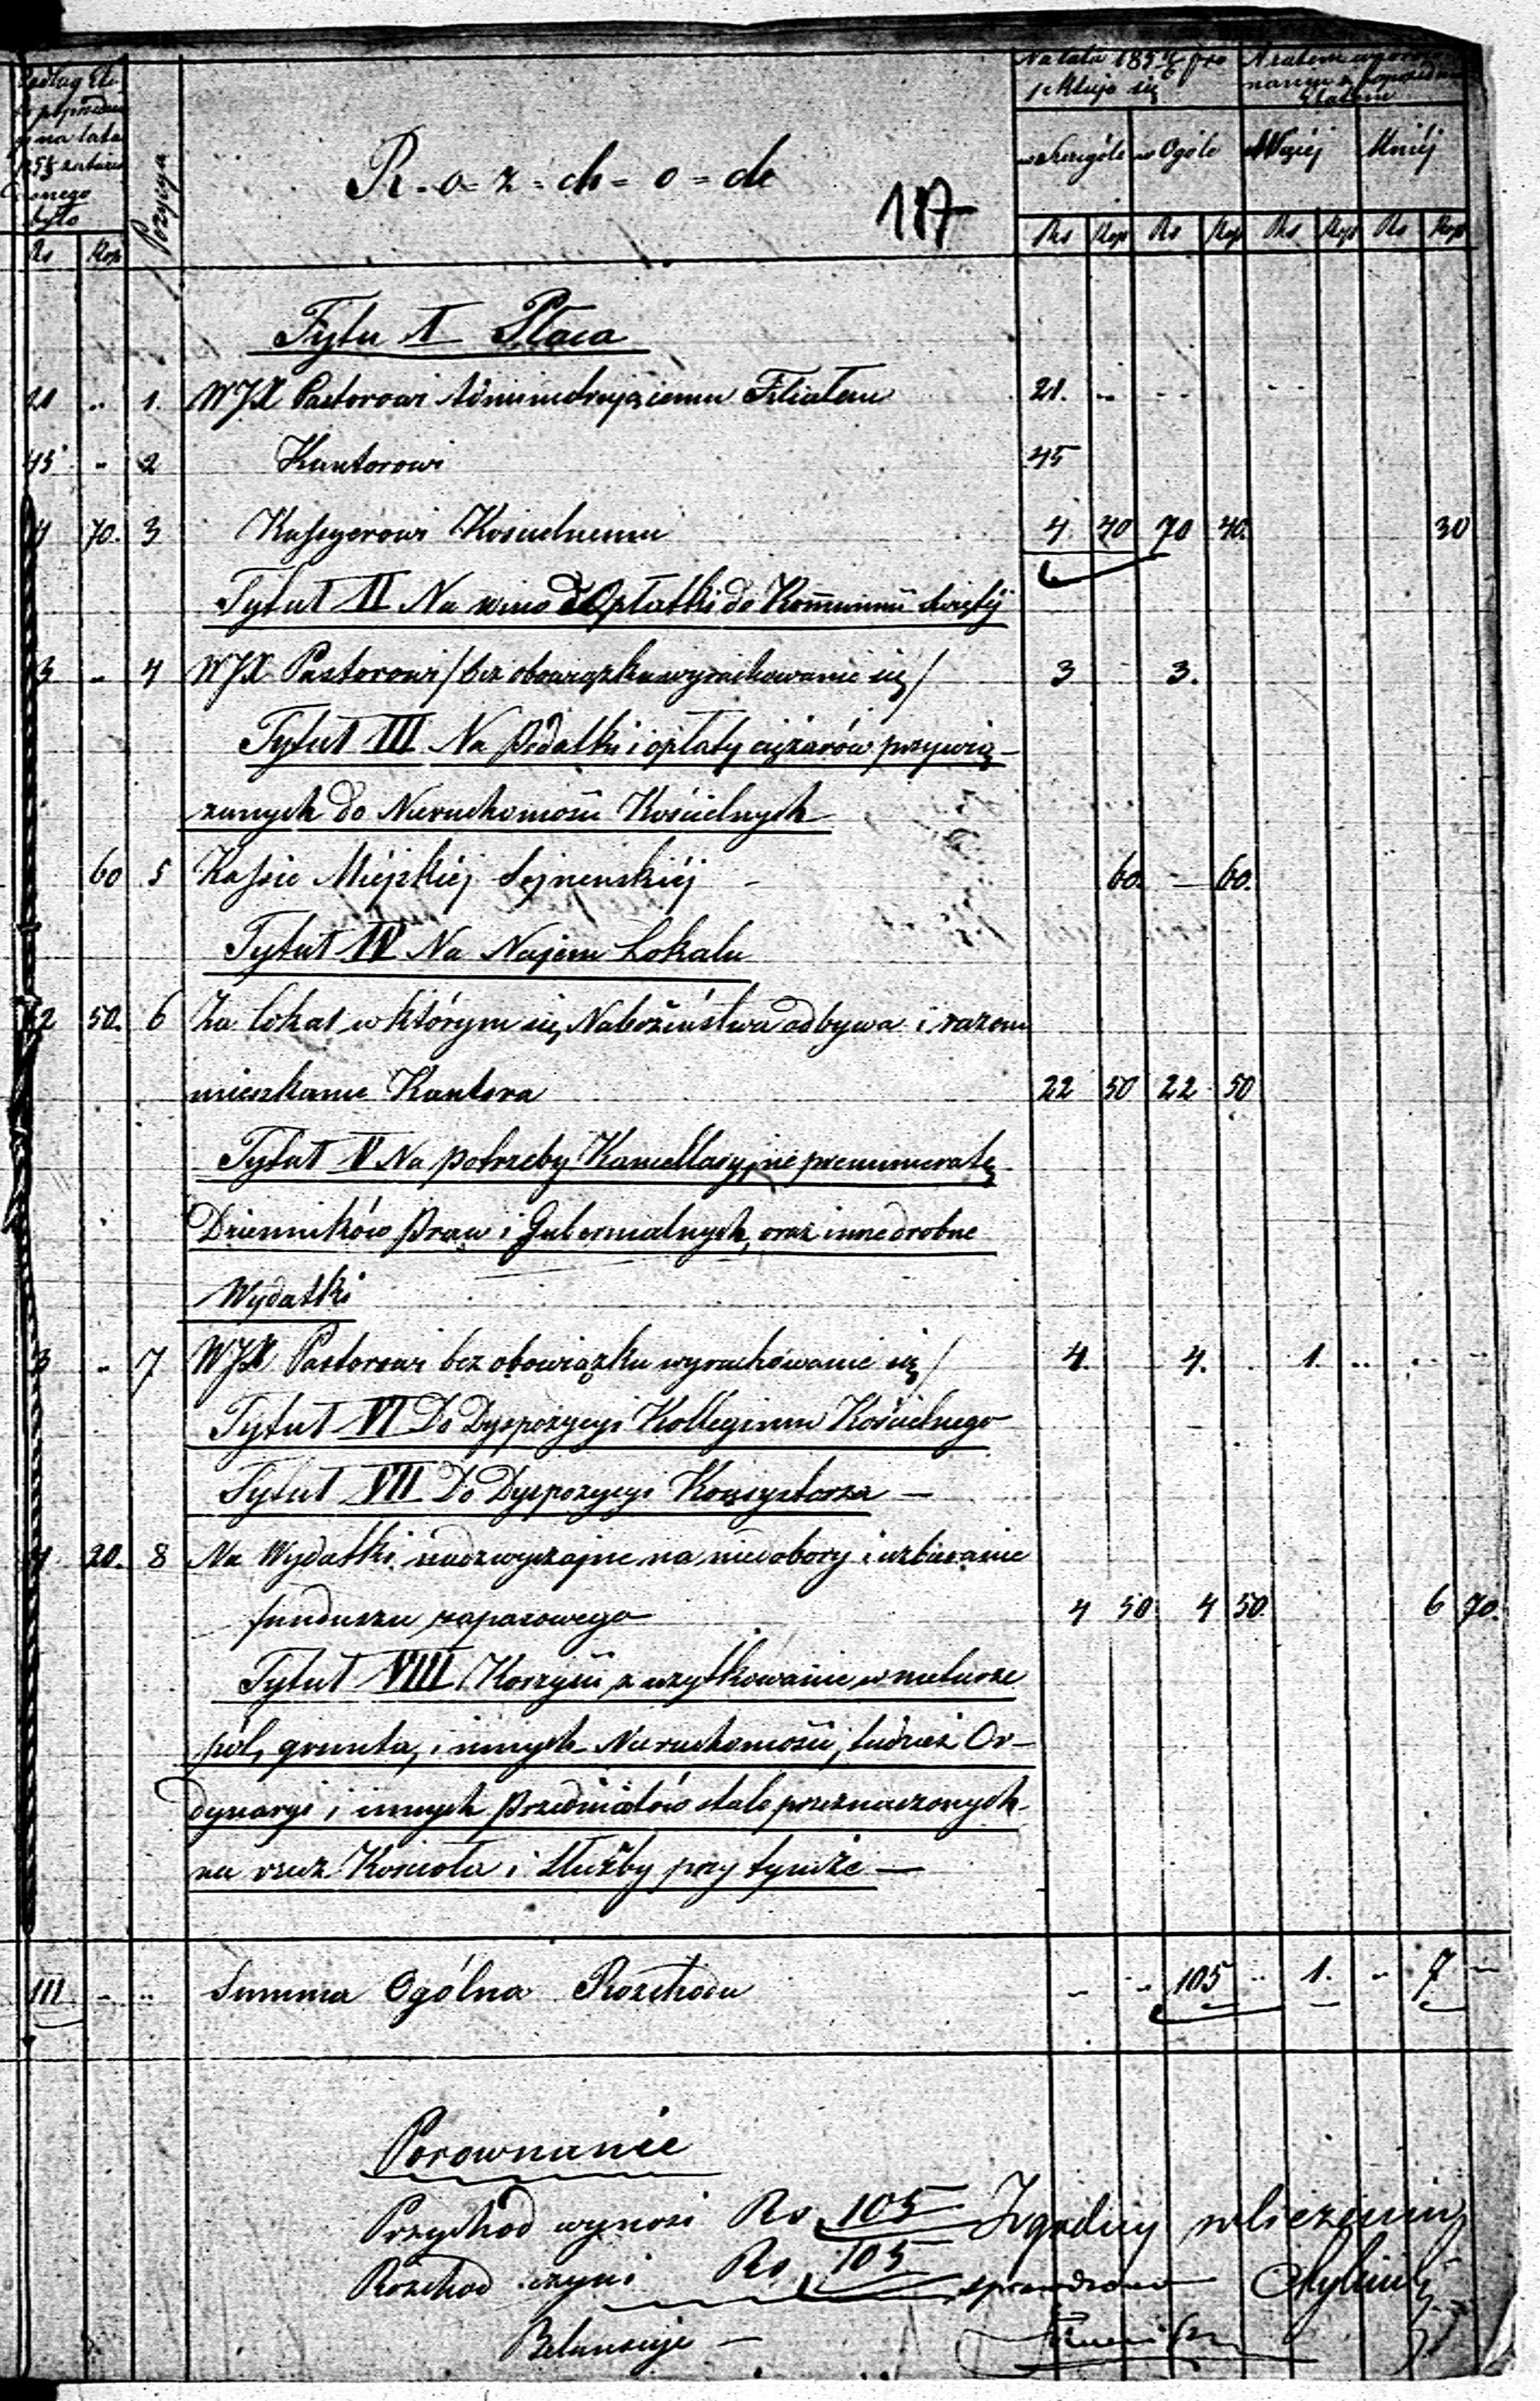 Podług Eta
na lata
było
Rs Kop
Pozycya
R=o=z=ch=o=d
117
Na lata 185 pro
jektuje się
w Szczególe w Ogóle
Etatem
Więcéj Mniéj
Rs Kop Rs Kop Rs Kop Rs Kop
Tytu I Płaca
21 .. 1. WJX Pastorowi Administrującemu Filiałem 21. .. .. ..
45 .. 2 Kantorowi 45
4 70. 3 Kassyerowi Kościelnemu 4 40 70 40. 30
Tytuł II Na wino i Opłatki do Kommunii świętéj
3 .. 4 WJX Pastorowi /bez obowiązku wyrachowanie się/ 3 3.
Tytuł III Na Podatki i opłaty ciężarów przywią-
zanych do Nieruchomości Kościelnych
60 5 Kassie Miéjskiéj Sejneńskiéj - 60. — 60.
Tytuł IV Na Najem Lokalu
50. 6 Za lokal w którym się Nabożeństwa odbywa i razem
mieszkanie Kantora 22 50 22 50
Tytuł V Na potrzeby Kancellaryjne prenumeratę
Dzienników Praw i Gubernialnych, oraz inne drobne
Wydatki
3 .. 7 WJX Pastorowi bez obowiązku wyrachowanie się/ 4. 4. 1. .. .. ..
Tytuł VI Do Dyspozycyi Kollegium Kościelnego
Tytuł VII Do Dyspozycyi Konsystorza —
20. 8 Na Wydatki nadzwyczajne na niedobory i uzbieranie
funduszu zapasowego 4 50 4 50. 6 70.
Tytuł VIII Korzyści z użytkowanie w naturze
pól, grunta, i innych Nieruchomości, tudzież Or-
dynaryi i innych Przedmiotów stale przeznaczonych
na rzecz Kościoła i Służby przy tymże —
111 .. .. Summa Ogólna Rozchodu - .. 105 .. 1. .. 7 —
Porownanie
Przychód wynosi Rs 105 Zgodny w liczeniu
Rozchod czyni Rs 105 sprawdzono
Belansuje —